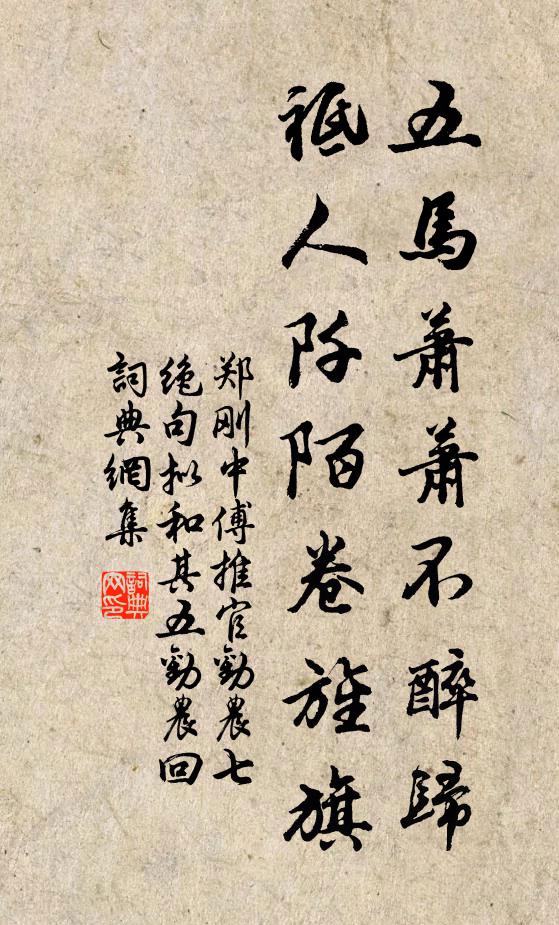 五馬蕭蕭不醉歸
祗人阡陌卷旌旗
郑刚中傅推官勸農七
绝句拟和其五勸農回
詞典網集
詞典网印